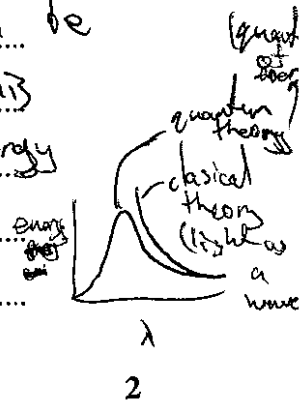 be
(quant
of
quantum
theory
rgy
clasical
theory
(light as
a
wave
energy
λ
2